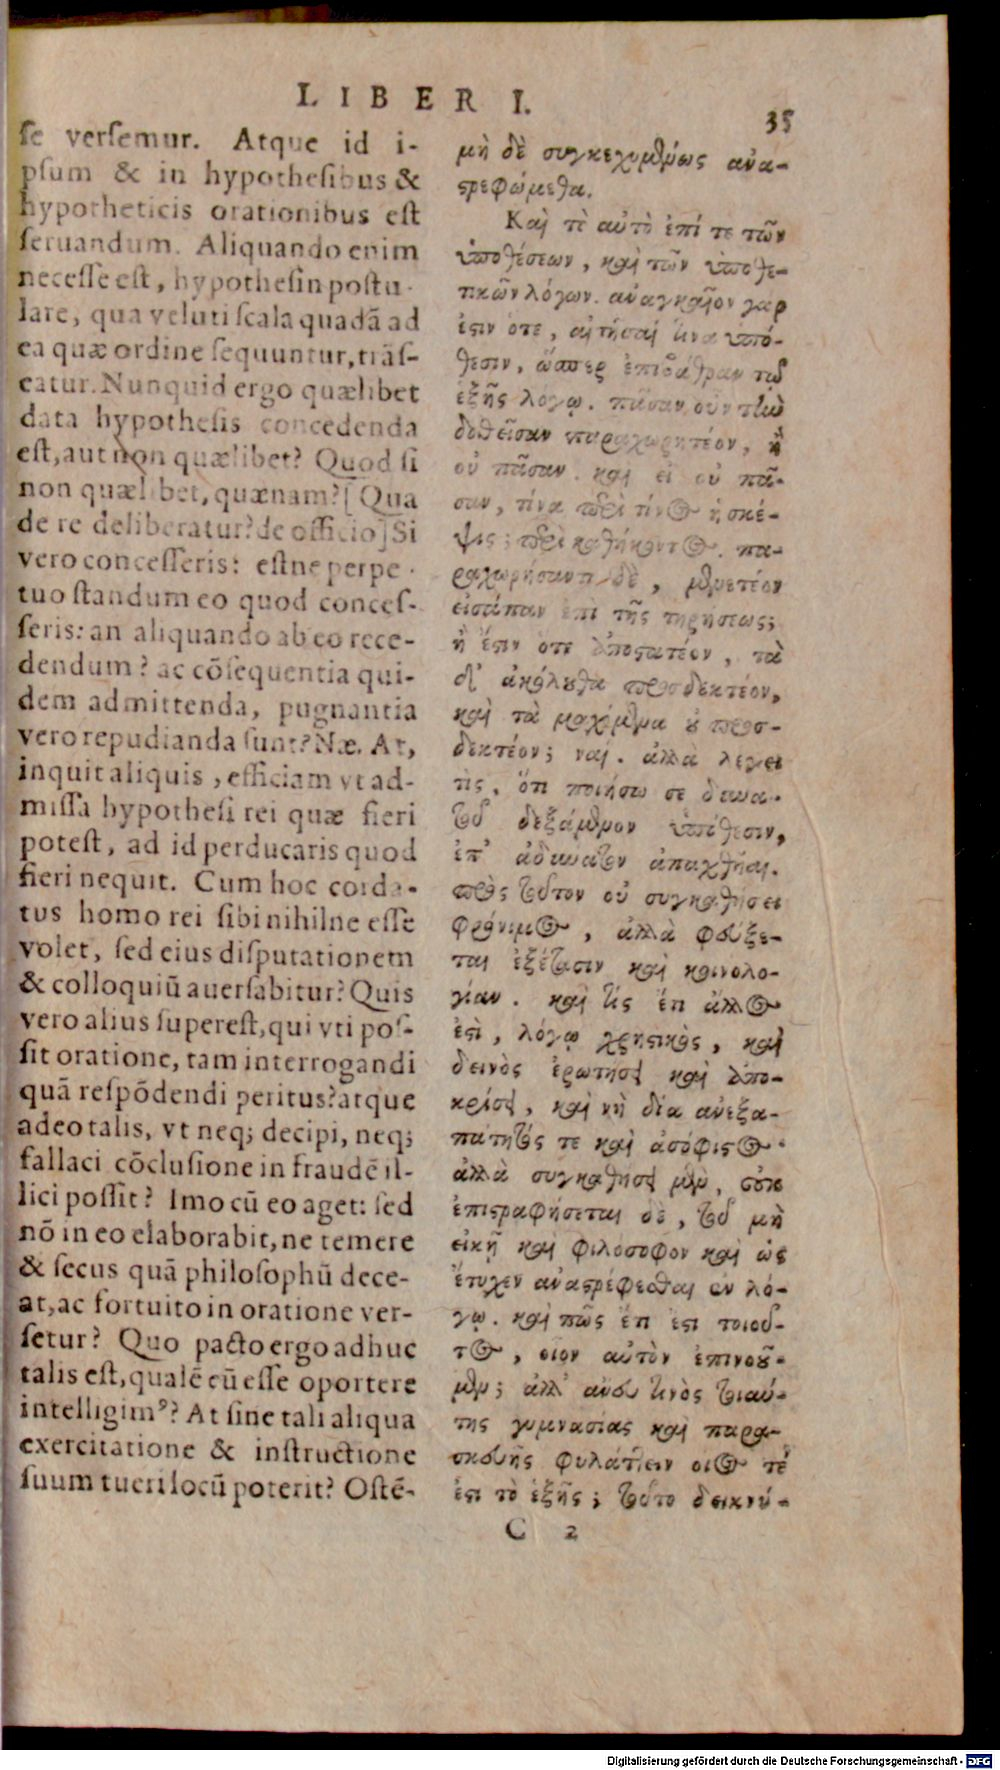 LIBER I.
35
se versemur. Atque id i-
psum & in hypothesibus &
hypotheticis orationibus est
seruandum. Aliquando enim
necesse est, hypothesin postu-
lare, qua veluti scala quadā ad
ea quæ ordine sequuntur, trās-
eatur. Nunquid ergo quælibet
data hypothesis concedenda
est, aut non quælibet? Quod si
non quælibet, quænam? [Qua
de re deliberatur? de officio] Si
vero concesseris: estne perpe-
tuo standum eo quod conces-
seris: an aliquando ab eo rece-
dendum? ac cōsequentia qui-
dem admittenda, pugnantia
vero repudianda sunt? Næ. At,
inquit aliquis, efficiam vt ad-
missa hypothesi rei quæ fieri
potest, ad id perducaris quod
fieri nequit. Cum hoc corda-
tus homo rei sibi nihilne esse
volet, sed eius disputationem
& colloquiū auersabitur? Quis
vero alius superest, qui vti pos-
sit oratione, tam interrogandi
quā respōdendi peritus? atque
adeo talis, vt neq; decipi, neq;
fallaci cōclusione in fraudē il-
lici possit? Imo cū eo aget: sed
nō in eo elaborabit, ne temere
& secus quā philosophū dece-
at, ac fortuito in oratione ver-
setur? Quo pacto ergo adhuc
talis est, qualē eū esse oportere
intelligimꝰ? At sine tali aliqua
exercitatione & instructione
suum tueri locū poterit? Ostē-
μὴ δὲ συγκεχυμένως ἀνα-
στρεφώμεθα.
Καὶ τὲ αὐτὸ ἐπί τε τῶν
ὑποθέσεων, καὶ τῶν ὑποθε-
τικῶν λόγων. ἀναγκαῖον γαρ
ἐστιν ὁτε, αἰτῆσαί τινα ὑπό-
θεσιν, ὥσπερ ἐπιβάθραν τῷ
ἑξῆς λόγῳ. πᾶσαν οὖν τὴν
δοθεῖσαν παραχωρητέον, ἢ
οὐ πᾶσαν. καὶ εἰ οὐ πᾶ-
σαν, τίνα περὶ τίνος ἡ σκέ-
ψις; περὶ καθήκοντος. πα-
ραχωρήσαντι δὲ, μενετέον
εἰσάπαν ἐπὶ τῆς τηρήσεως;
ἢ ἔστιν ὁτε ἀποστατέον, τὰ
δ' ἀκόλουθα προσδεκτέον,
καὶ τὰ μαχόμενα οὐ προσ-
δεκτέον; ναί. ἀλλὰ λέγει
τὶς, ὅτι ποιήσω σε δυνα-
τοῦ δεξάμενον ὑπόθεσιν,
ἐπ' ἀδύνατον ἀπαχθῆναι.
πρὸς τοῦτον οὐ συγκαθήσει
φρόνιμος, ἀλλὰ φεύξε-
ται ἐξέτασιν καὶ κοινολο-
γίαν. καὶ τίς ἔτι ἄλλος
ἐστὶ, λόγῳ χρηστικὸς, καὶ
δεινὸς ἐρωτήσει καὶ ἀπο-
κρίσει, καὶ νὴ δία ἀνεξα-
πάτητός τε καὶ ἀσόφιστος.
ἀλλὰ συγκαθήσει μὲν, οὐκ
ἐπιστραφήσεται δὲ, τοῦ μὴ
εἰκῆ καὶ φιλοσοφον καὶ ὡς
ἔτυχεν ἀναστρέφεσθαι ἐν λό-
γῳ. καὶ πῶς ἔτι ἐστι τοιοῦ-
τος, οἷον αὐτὸν ἐπινοοῦ-
μεν; ἀλλ' ἄνευ τινὸς τοιαύ-
της γυμνασίας καὶ παρα-
σκευῆς φυλάττειν οἷός τέ
ἐστι τὸ ἑξῆς; τοῦτο δεικνύ-
C 2
Digitalisierung gefördert durch die Deutsche Forschungsgemeinschaft - DFG